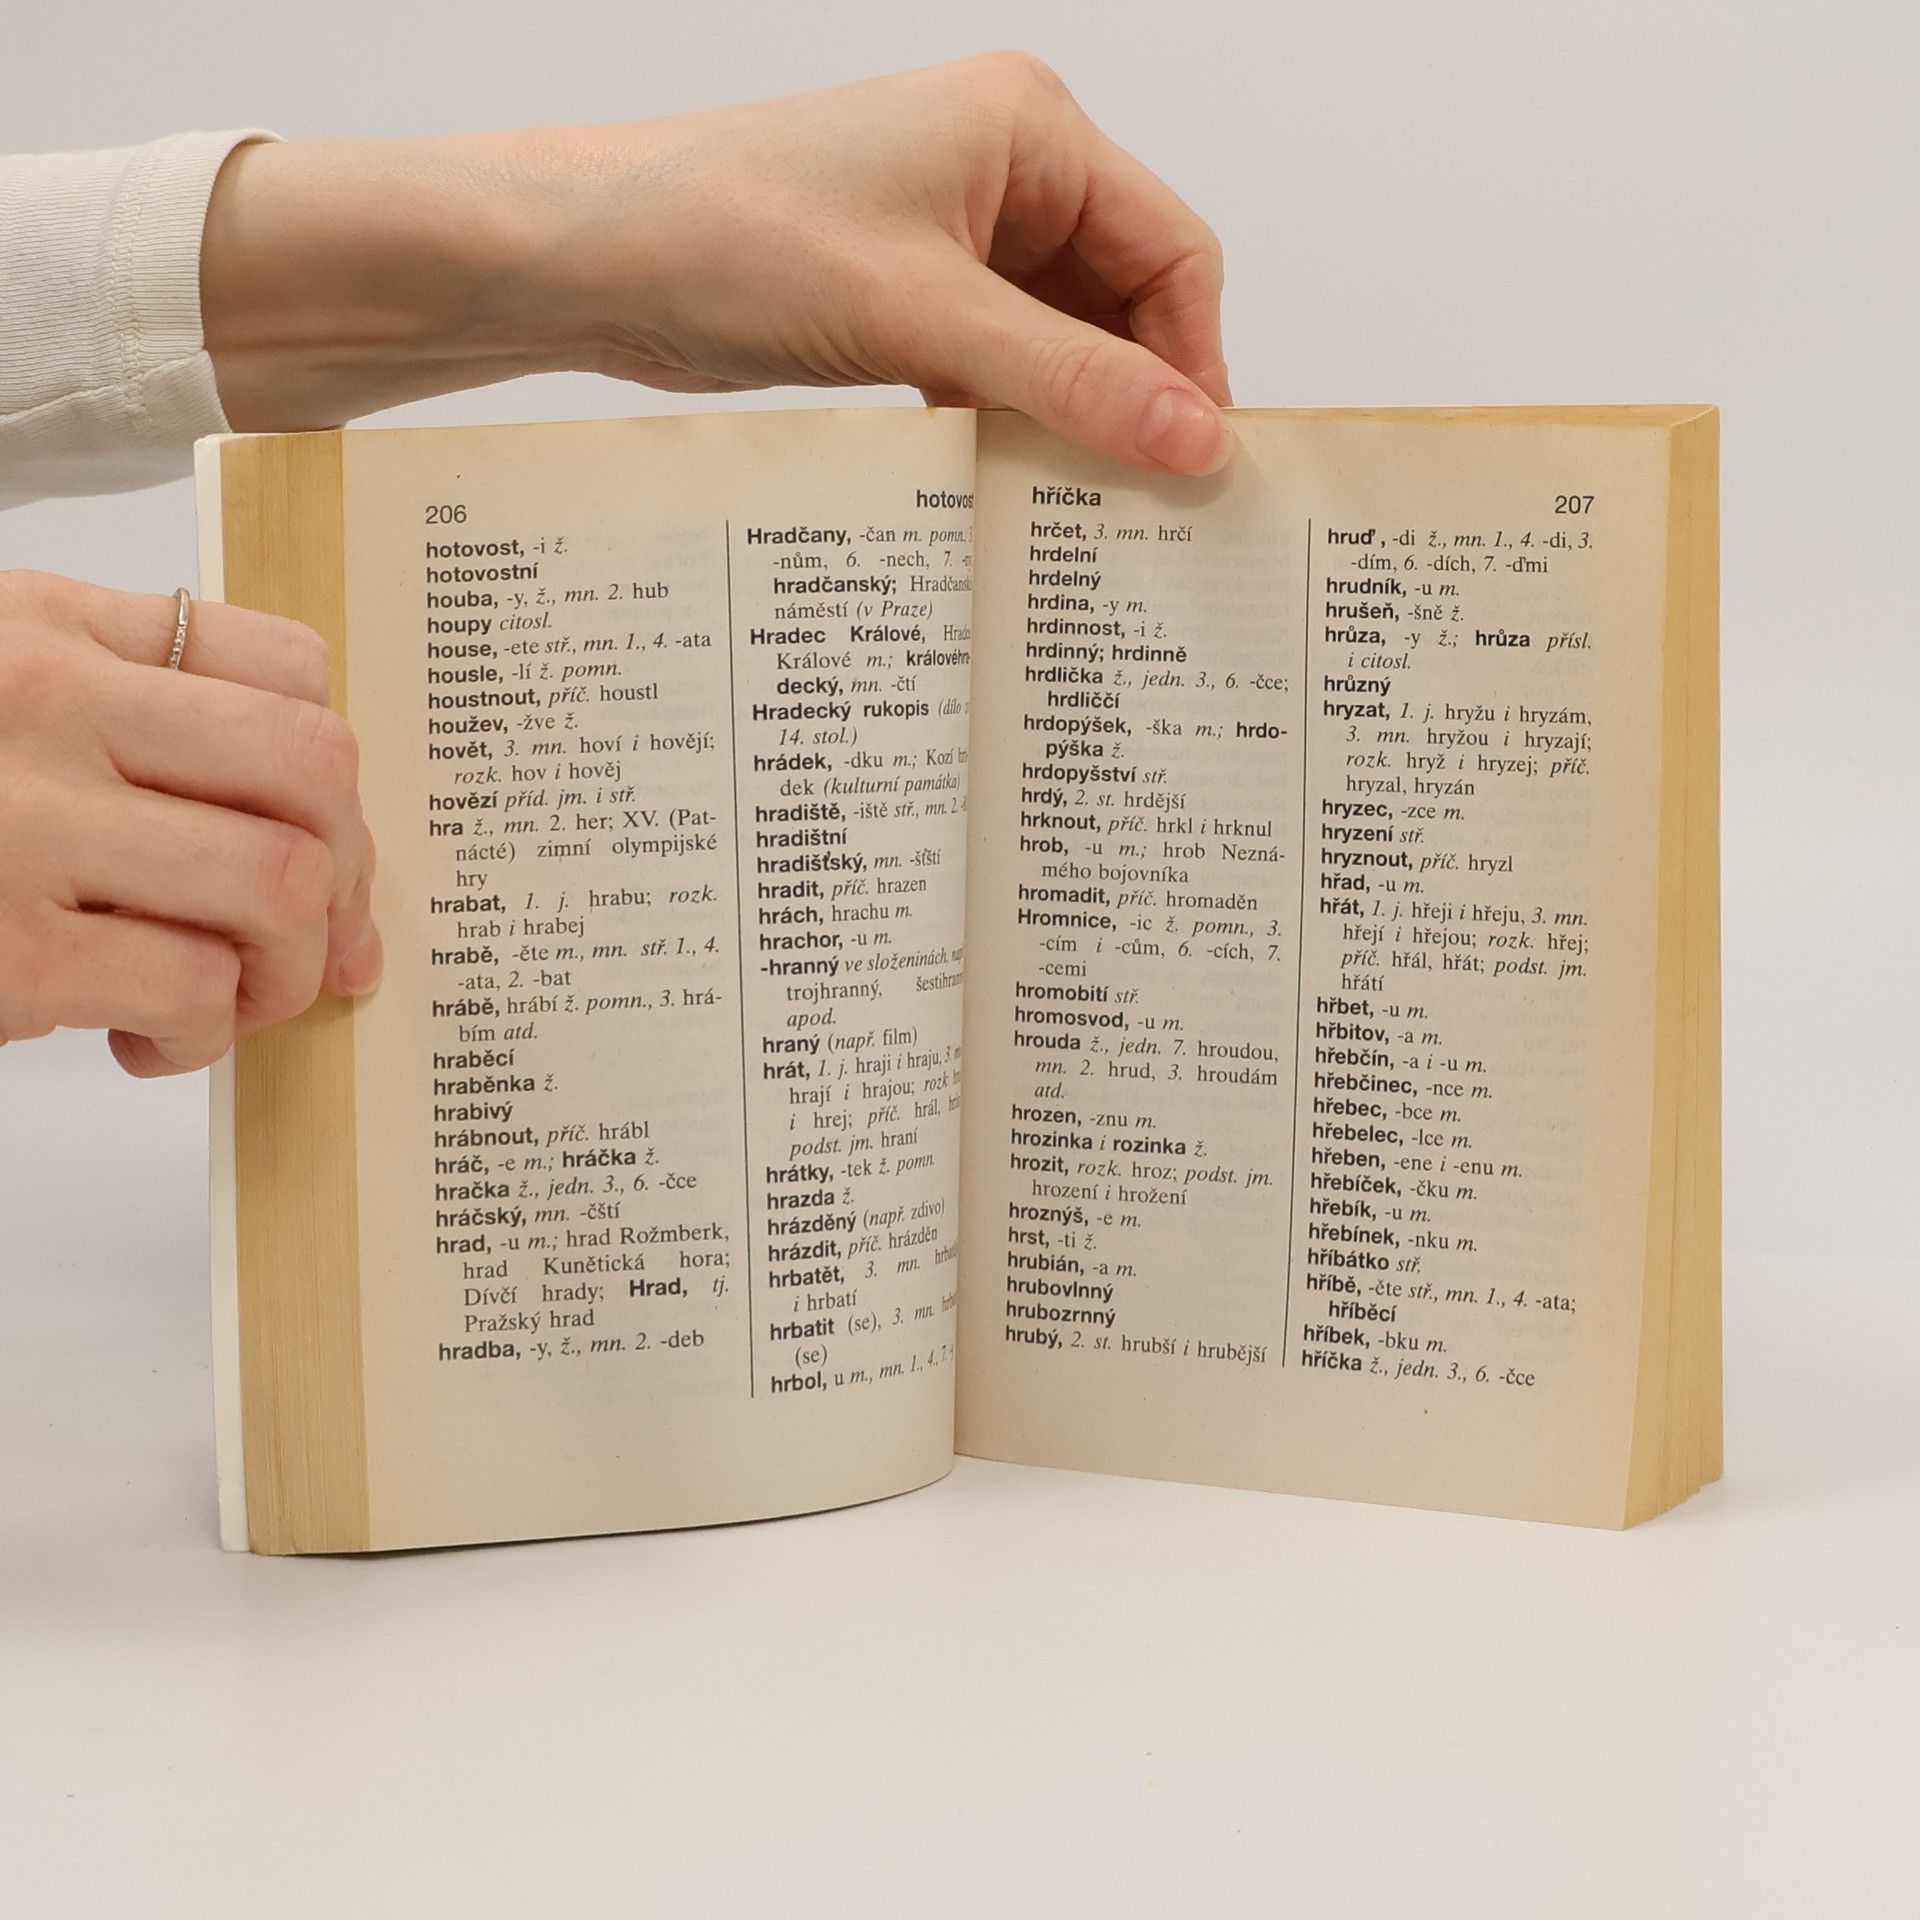 206
hotovost, -i ž.
hotovostní
houba, -y, ž., mn. 2. hub
houpy citosl.
house, -ete stř., mn. 1., 4. -ata
housle, -lí ž. pomn.
houstnout, příč. houstl
houžev, -žve ž.
hovět, 3. mn. hoví i hovějí;
rozk. hov i hověj
hovězí příd. jm. i stř.
hra ž., mn. 2. her; XV. (Pat-
nácté) zimní olympijské
hry
hrabat, 1. j. hrabu; rozk.
hrab i hrabej
hrabě, -ěte m., mn. stř. 1., 4.
-ata, 2. -bat
hrábě, hrábí ž. pomn., 3. hrá-
bím atd.
hraběcí
hraběnka ž.
hrabivý
hrábnout, příč. hrábl
hráč, -e m.; hráčka ž.
hračka ž., jedn. 3., 6. -čce
hráčský, mn. -čští
hrad, -u m.; hrad Rožmberk,
hrad Kunětická hora;
Dívčí hrady; Hrad, tj.
Pražský hrad
hradba, -y, ž., mn. 2. -deb
Hradčany, -čan m. pomn., 3.
-nům, 6. -nech, 7.
hradčanský;
náměstí (v Praze)
Hradec Králové,
Králové m.; králověhra-
decký, mn. -čtí
Hradecký rukopis (dílo
14. stol.)
hrádek, -dku m.; Kozí
dek (kulturní památka)
hradiště, -iště stř., mn. 2.
hradištní
hradišťský, mn. -šťští
hradit, příč. hrazen
hrách, hrachu m.
hrachor, -u m.
-hranný ve složeninách.
trojhranný,
apod.
hraný (např. film)
hrát, 1. j. hraji i hraju,
hrají i hrajou; rozk
i hrej; příč. hrál,
podst. jm. hraní
hrátky, -tek ž. pomn.
hrazda ž.
hrázděný (např. zdivo)
hrázdit, příč. hrázděn
hrbatět, 3. mn.
i hrbatí
hrbatit (se), 3. mn.
(se)
hrbol, u m., mn. 1., 4.,
hříčka
207
hrčet, 3. mn. hrčí
hrdelní
hrdelný
hrdina, -y m.
hrdinnost, -i ž.
hrdinný; hrdinně
hrdlička ž., jedn. 3., 6. -čce;
hrdliččí
hrdopýšek, -ška m.; hrdo-
pýška ž.
hrdopyšství stř.
hrdý, 2. st. hrdější
hrknout, příč. hrkl i hrknul
hrob, -u m.; hrob Nezná-
mého bojovníka
hromadit, příč. hromaděn
Hromnice, -ic ž. pomn., 3.
-cím i -cům, 6. -cích, 7.
-cemi
hromobití stř.
hromosvod, -u m.
hrouda ž., jedn. 7. hroudou,
mn. 2. hrud, 3. hroudám
atd.
hrozen, -znu m.
hrozinka i rozinka ž.
hrozit, rozk. hroz; podst. jm.
hrození i hrožení
hroznýš, -e m.
hrst, -ti ž.
hrubián, -a m.
hrubovlnný
hrubozrnný
hrubý, 2. st. hrubší i hrubější
hruď, -di ž., mn. 1., 4. -di, 3.
-dím, 6. -dích, 7. -ďmi
hrudník, -u m.
hrušeň, -šně ž.
hrůza, -y ž.; hrůza přísl.
i citosl.
hrůzný
hryzat, 1. j. hryžu i hryzám,
3. mn. hryžou i hryzají;
rozk. hryž i hryzej; příč.
hryzal, hryzán
hryzec, -zce m.
hryzení stř.
hryznout, příč. hryzl
hřad, -u m.
hřát, 1. j. hřeji i hřeju, 3. mn.
hřejí i hřejou; rozk. hřej;
příč. hřál, hřát; podst. jm.
hřátí
hřbet, -u m.
hřbitov, -a m.
hřebčín, -a i -u m.
hřebčinec, -nce m.
hřebec, -bce m.
hřebelec, -lce m.
hřeben, -ene i -enu m.
hřebíček, -čku m.
hřebík, -u m.
hřebínek, -nku m.
hříbátko stř.
hříbě, -ěte stř., mn. 1., 4. -ata;
hříběcí
hříbek, -bku m.
hříčka ž., jedn. 3., 6. -čce